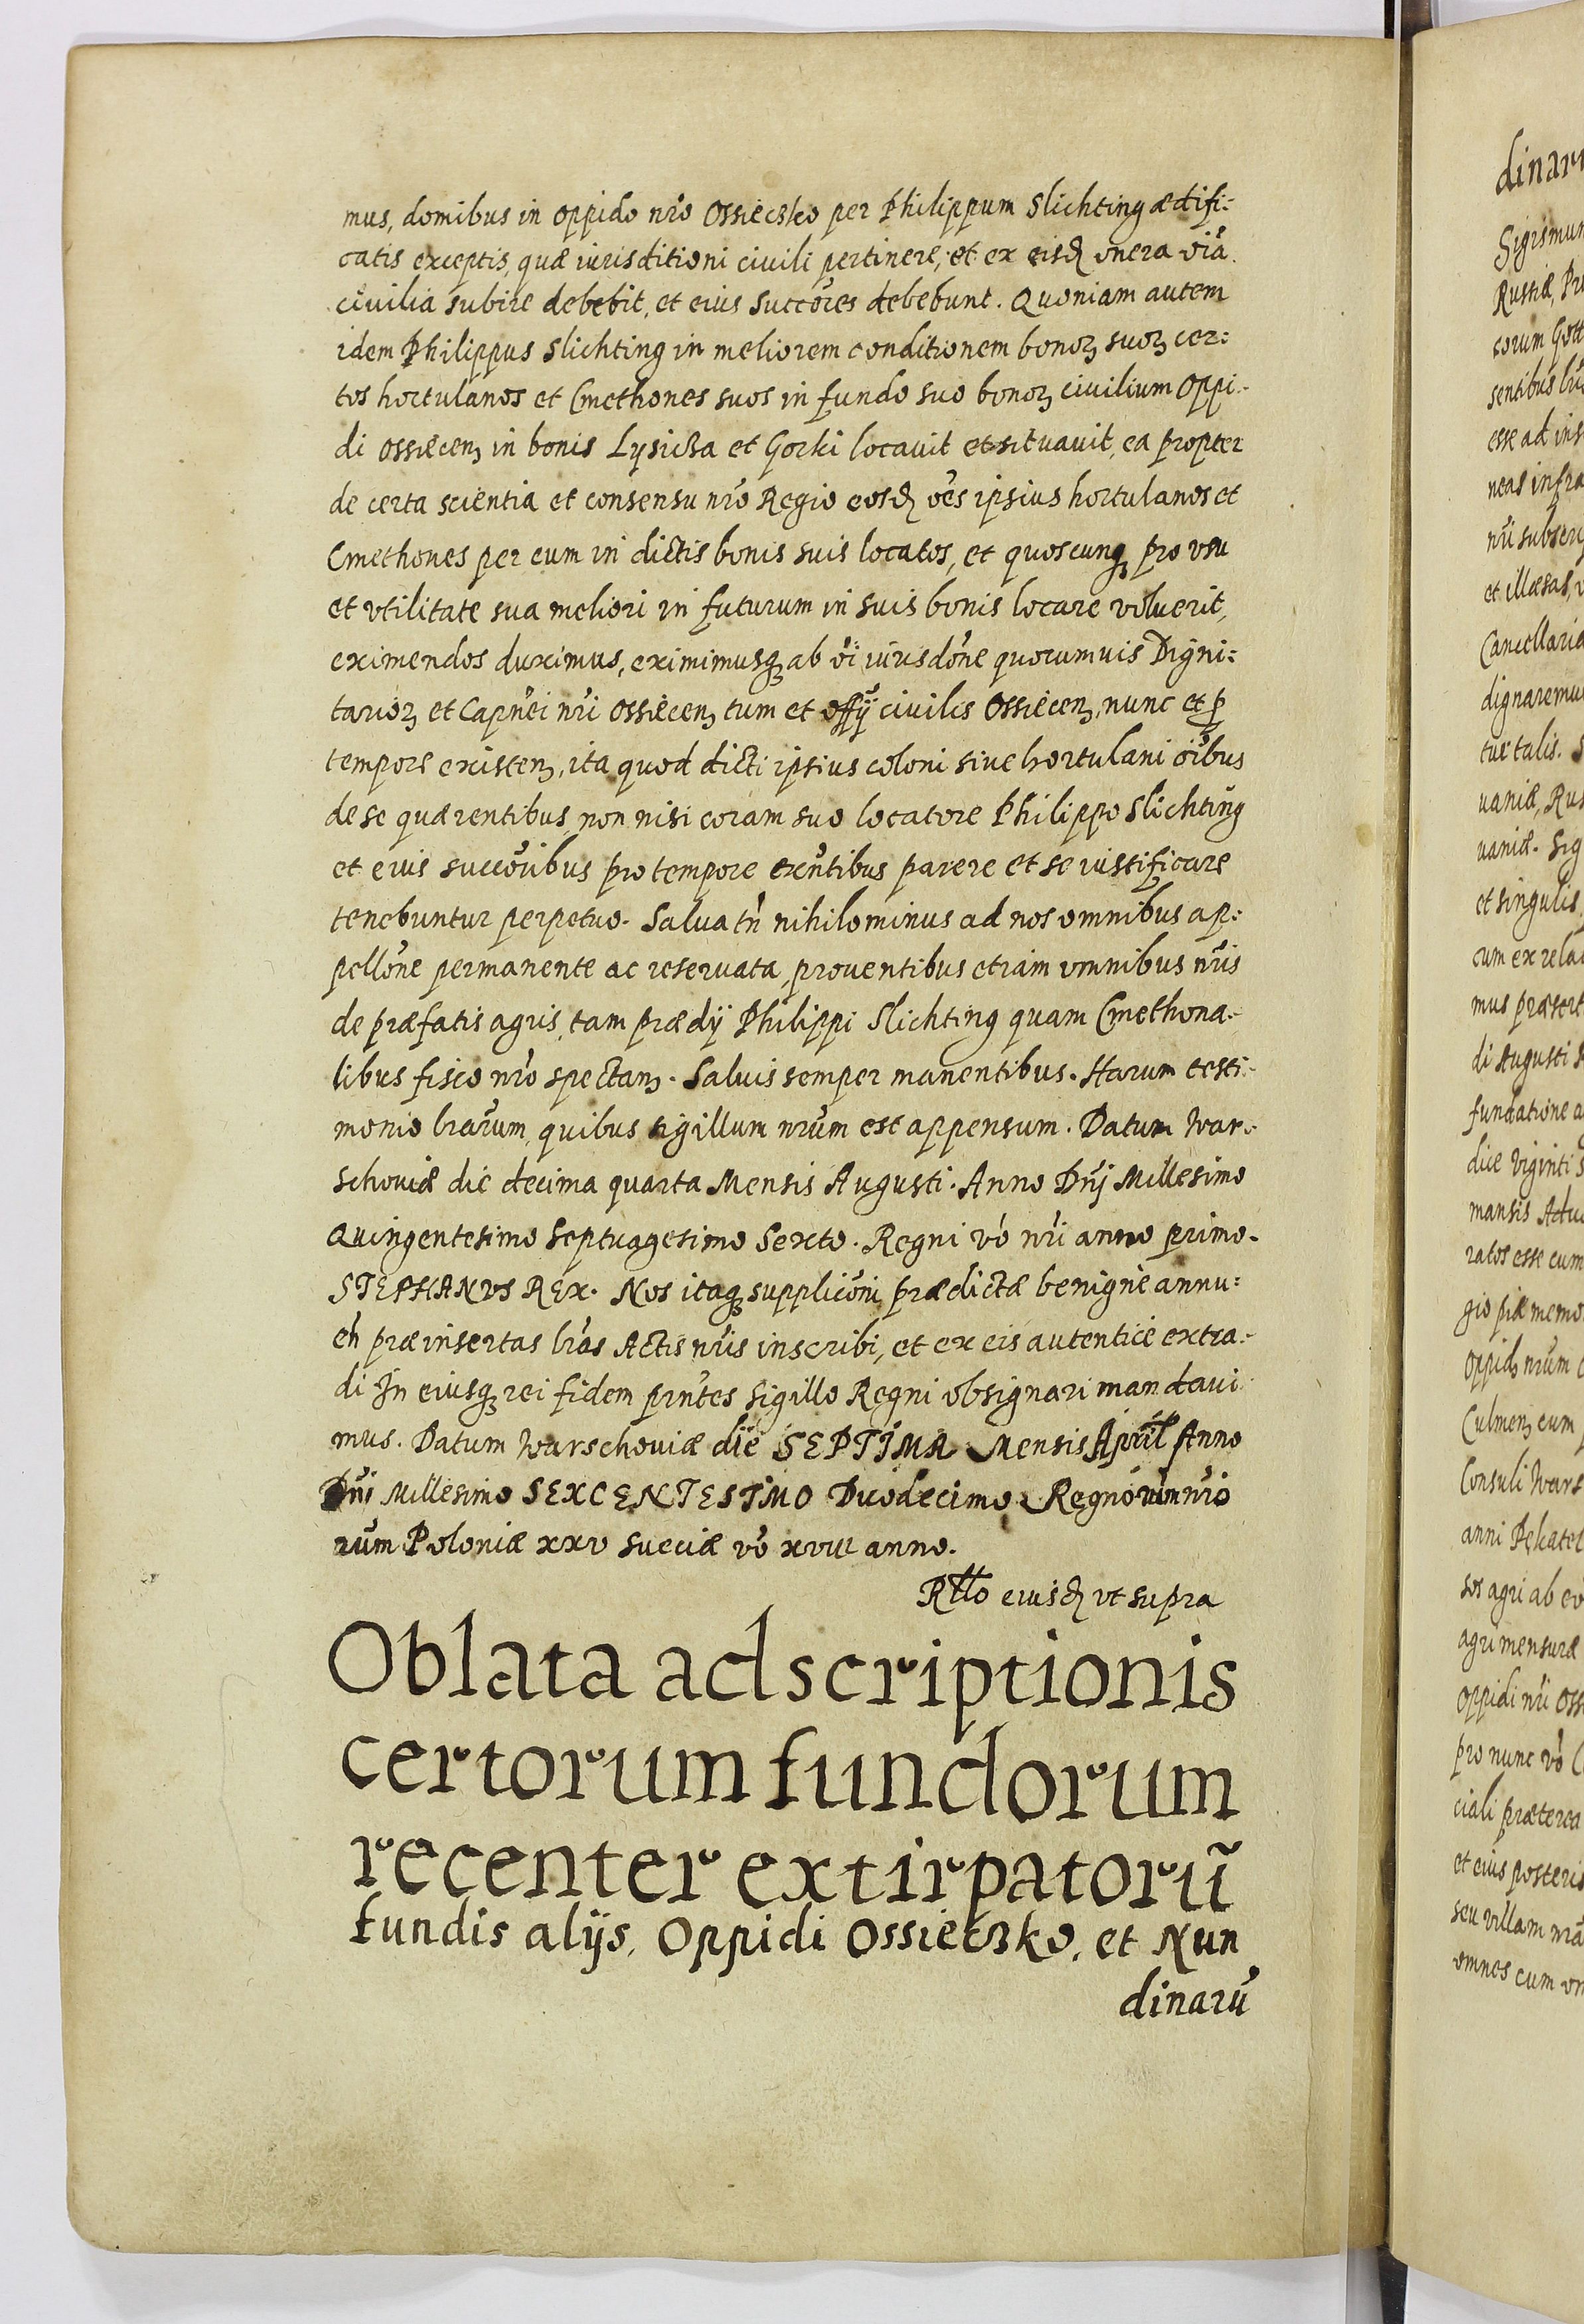 mus, domibus in oppido nr̄o Ossieczko per Philippum Slichting ædifi:
catis exceptis, quæ iurisditioni civili pertinere, et ex eisđ onera oīa
civilia subire debebit, et eius succōres debebunt. Quoniam autem
idem Philippus Slichting in meliorem conditionem bonoꝝ suoꝝ cer:
tos hortulanos et Cmethones suos in fundo suo bonoꝝ civilium Oppi-
di Ossiecenꝫ in bonis Lysicza et Gorki locavit et situavit, ea propter
de certa scientia et consensu nr̄o Regio eosđ oēs ipsius hortulanos et
Cmethones per eum in dictis bonis suis locatos, et quoscunqꝫ pro vsu
et vtilitate sua meliori in futurum in suis bonis locare voluerit,
eximendos duximus, eximimusqꝫ ab oī iurisdōne quorumuis Digni:
tarioꝝ et Capnēi nr̄i Ossiecenꝫ tum et offÿ civilis Ossiecenꝫ, nunc et ꝑ
tempore existenꝫ, ita quod dicti ipsius coloni siue hortulani oībus
de se quærentibus non nisi coram suo locatore Philippo Slichting
et eius succōribus pro tempore exn̄tibus parere et se iustificare
tenebuntur perpetuo. Salua tn̄ nihilominus ad nos omnibus ap:
pellōne permanente ac reseruata, proventibus etiam omnibus nr̄is
de præfatis agris, tam prædÿ Philippi Slichting quam Cmethona-
libus fisco nr̄o spectanꝫ. Saluis semper manentibus. Harum testi-
monio lr̄arum, quibus sigillum nr̄um est appensum. Datum War-
schoviæ die decima quarta Mensis Augusti. Anno Dn̄i Millesimo
Quingentesimo Septuagesimo Sexto. Regni vō nr̄i anno primo.
STEPHANVS REX. Nos itaqꝫ supplicōni prædictæ benigne annu:
en̄ præinsertas lr̄as Actis nr̄is inscribi, et ex eis autentice extra-
di In eiusqꝫ rei fidem prn̄tes Sigillo Regni obsignari mandavi
mus. Datum Warschoviæ die SEPTIMA Mensis April Anno
Dn̄i Millesimo SEXCENTESIMO Duodecimo Regnorum nr̄o
rum Poloniæ xxv Sueciæ vō xviii anno.
Rtto eiusđ vt supra
Oblata adscriptionis
certorum fundorum
recenter extirpatorū
fundis alijs, Oppidi Ossieczko, et Nun
dinarū
dinaru
Sigismun
Russiæ, Pru
corum Gott
sentibus lr̄
esse ad ins
neas infra
nr̄i subscri
et illæsas, v
Cancellaria
dignaremur
tur talis. S
uaniæ, Rus
uaniæ. Sig
et singulis
cum ex rela
mus præsert
di Augusti
fundatione a
dice viginti s
mansis Advo
ratos esse cum
gio piæ memo
Oppidꝫ nr̄um
Culmenꝫ cum
Consuli Wars
anni Pekatel
sos agri ab eo
agri mensuræ
Oppidi nr̄i Oss
pro nunc vō C
ciali præterea
et eius posteris
seu villam nr̄a
omnes cum